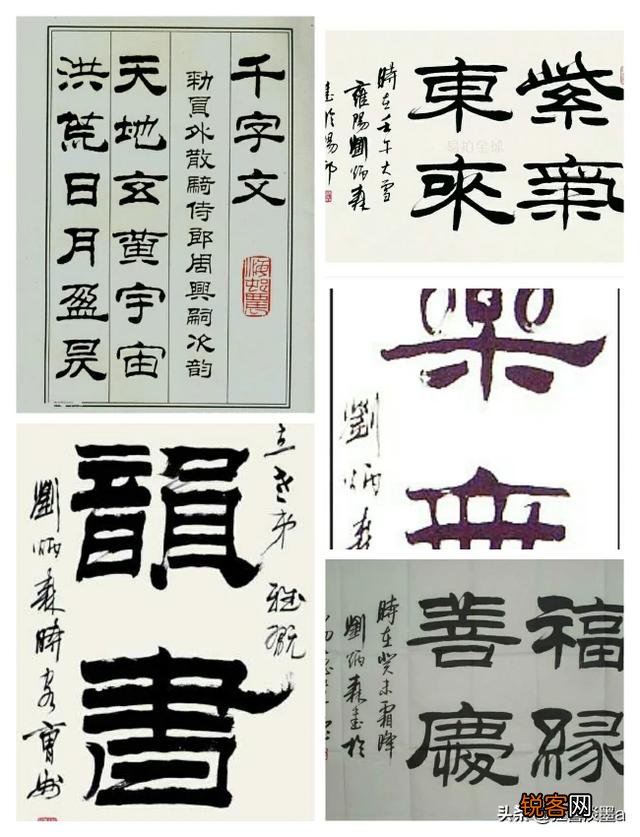 千字文
勅員外散騎侍郎周興嗣次韵
天地玄黃宇宙
洪荒日月盈昃
紫氣
東來
時在壬午大雪
雍陽劉炳森
易拍全球
樂無
劉炳森
韻書
劉炳森時客曹州
福緣
善慶
時在癸未霜降
劉炳森書於
头条
锐客网